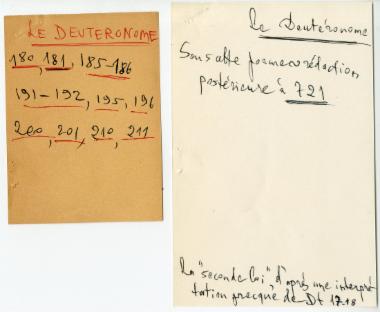 LE DEUTERONOME
180, 181, 185-186
191-192, 195, 196
200, 201, 210, 211
Le Deutéronome
Sous cette forme rédaction
postérieure à 721
La "seconde loi", d'après une interpré
tation grecque de Dt 17.18